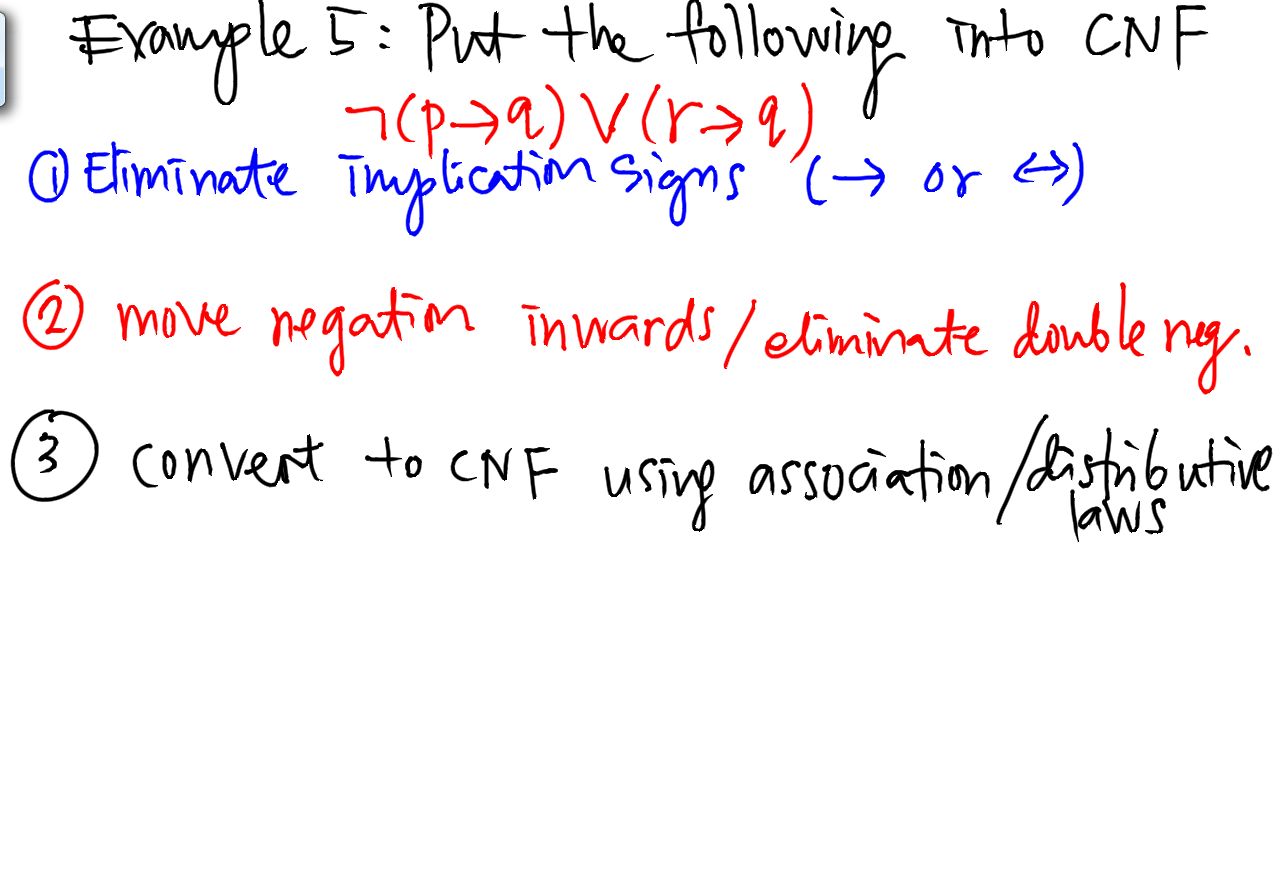 Example 5: Put the following into CNF
¬(p→q)∨(r→q)
① Eliminate implication signs (→ or ↔)
② move negation inwards/eliminate double neg.
③ convert to CNF using association/distributive
laws